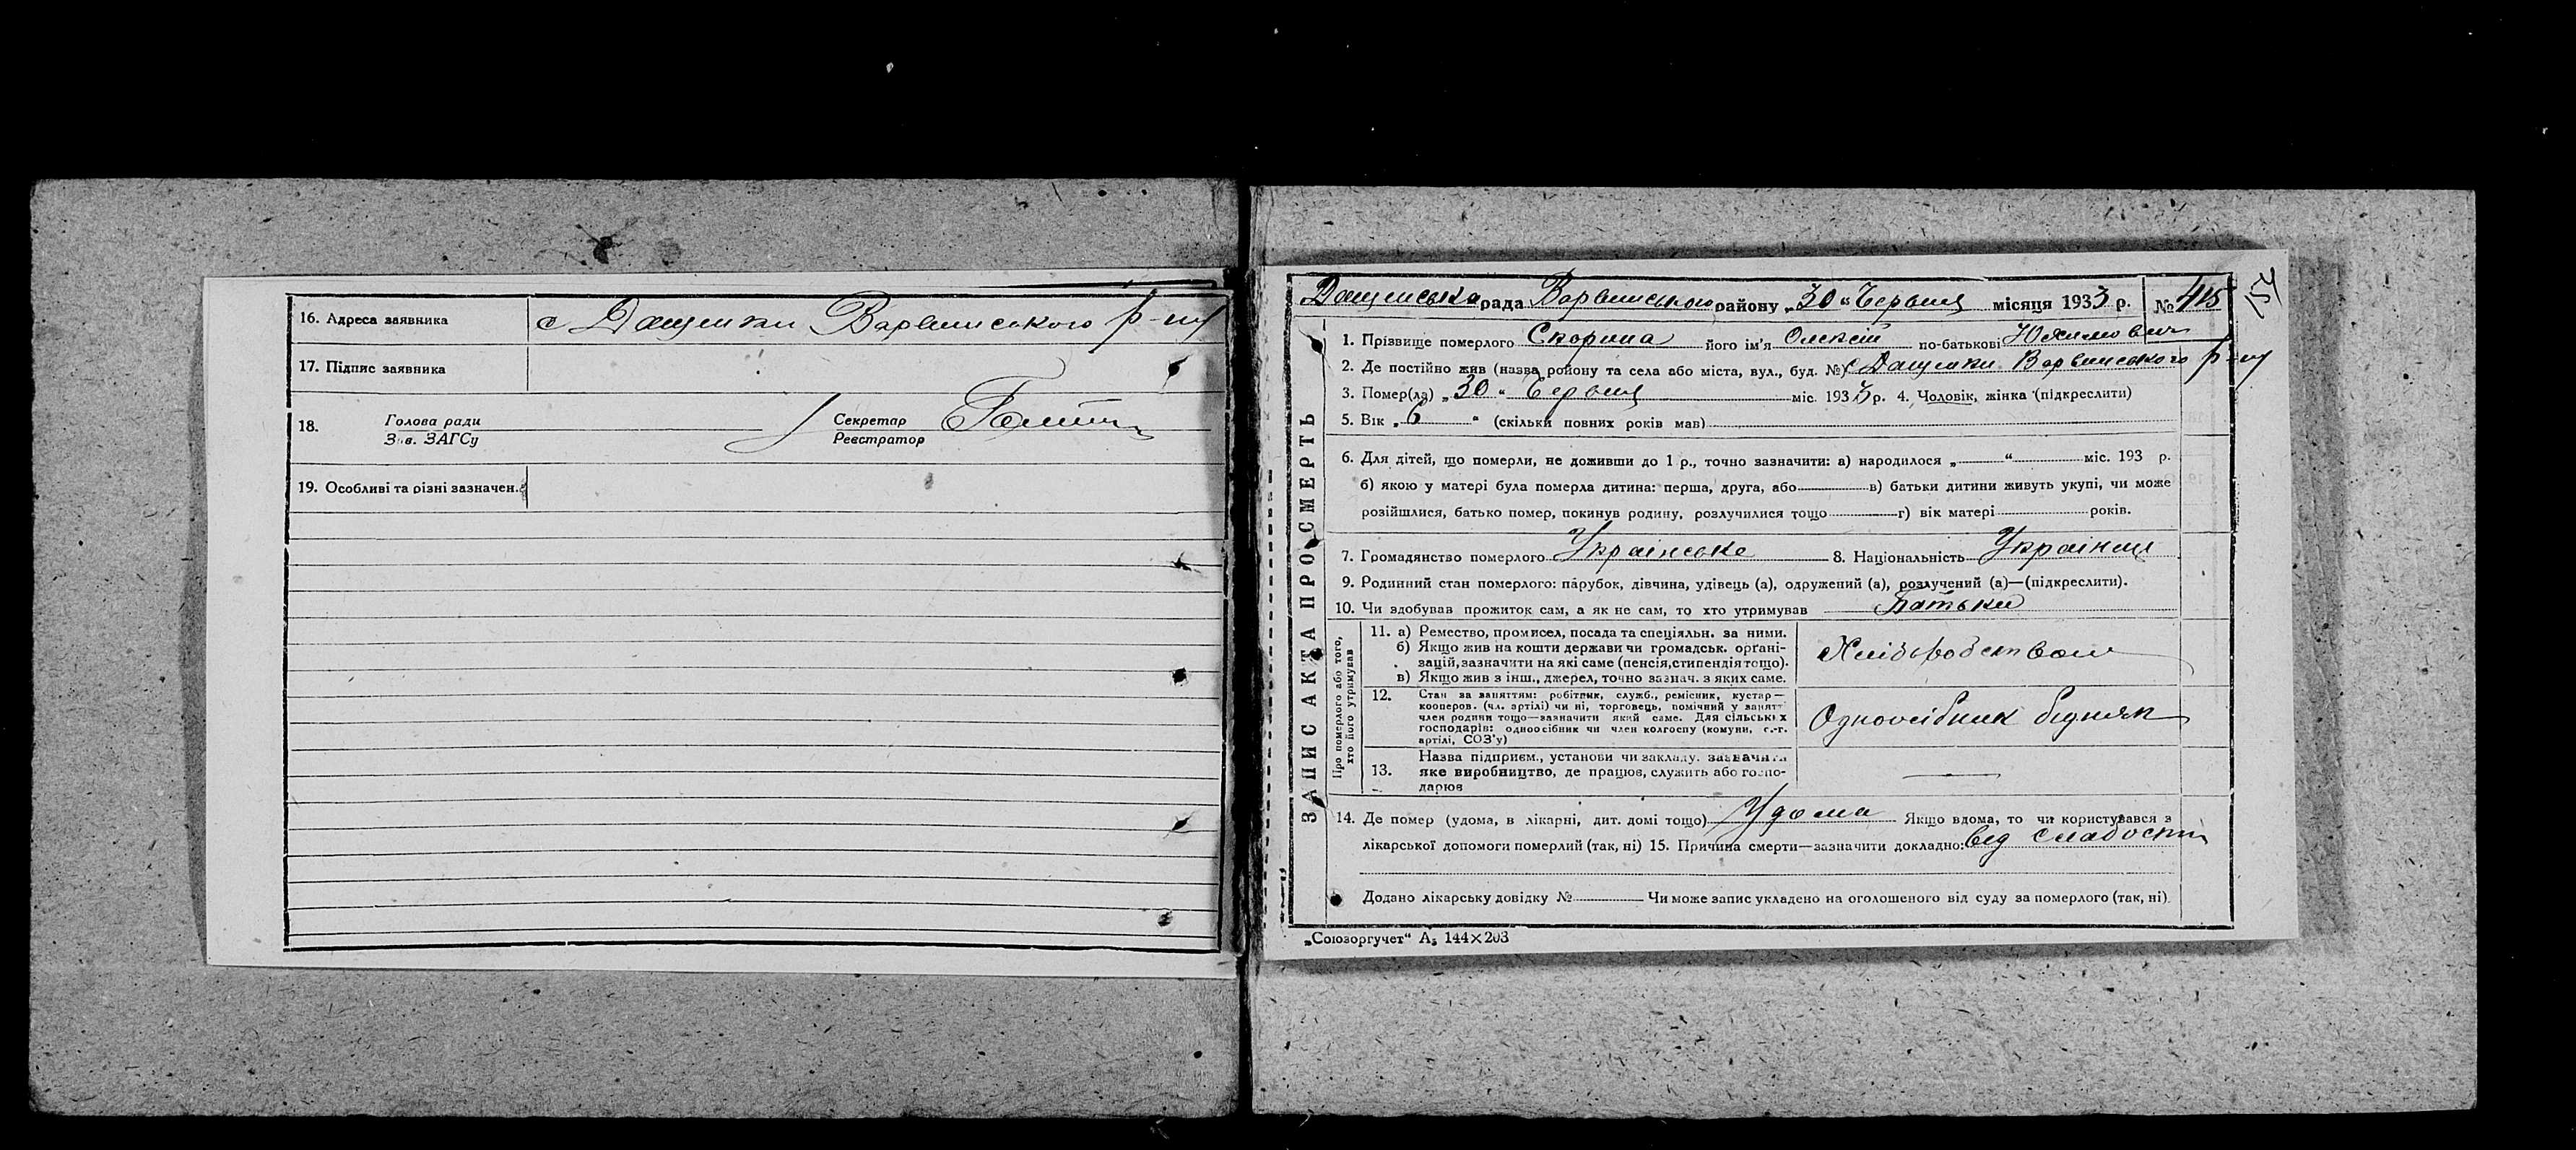 16. Адреса заявника с Дащенки Варвинського р-ну
17. Підпис заявника
18. Голова ради Секретар
Зав. ЗАГСу Реєстратор
19. Особливі та різні зазначен.
Дащенська рада Варвинського району „30“ Червня місяця 1933 р. № 415
154
ЗАПИС АКТА ПРО СМЕРТЬ
1. Прізвище померлого Скорина його ім'я Олексій по-батькові Юхимович
2. Де постійно жив (назва району та села або міста, вул., буд. №) с Дащенки Варвинського р-ну
3. Помер(ла) „30“ Червня міс. 1933 р. 4. Чоловік, жінка (підкреслити)
5. Вік „6“ (скільки повних років мав)
6. Для дітей, що померли, не доживши до 1 р., точно зазначити: а) народилося „ “ міс. 193 р.
б) якою у матері була померла дитина: перша, друга, або в) батьки дитини живуть укупі, чи може
розійшлися, батько помер, покинув родину, розлучилися тощо г) вік матері років.
7. Громадянство померлого Українське 8. Національність Українец
9. Родинний стан померлого: парубок, дівчина, удівець (а), одружений (а), розлучений (а)—(підкреслити).
10. Чи здобував прожиток сам, а як не сам, то хто утримував Батьки
Про померлого або того, хто його утримував
11. а) Ремество, промисел, посада та спеціяльн. за ними.
б) Якщо жив на кошти держави чи громадськ. орґані-
зацій, зазначити на які саме (пенсія, стипендія тощо).
в) Якщо жив з інш., джерел, точно зазнач. з яких саме.
Хліборобством
12. Стан за заняттям: робітник, служб., ремісник, кустар—
кооперов. (чл. артілі) чи ні, торговець, помічний у занятт
член родини тощо—зазначити який саме. Для сільських
господарів: одноосібник чи член колгоспу (комуни, с.-г.
артілі, СОЗ'у)
Одноосібник бідняк
13. Назва підприєм., установи чи закладу, зазначити
яке виробництво, де працює, служить або госпо-
дарює
14. Де помер (удома, в лікарні, дит. домі тощо) Удома Якщо вдома, то чи користувався з
лікарської допомоги померлий (так, ні) 15. Причина смерти—зазначити докладно: від слабости
Додано лікарську довідку № Чи може запис укладено на оголошеного від суду за померлого (так, ні)
„Союзоргучет“ А5 144×203